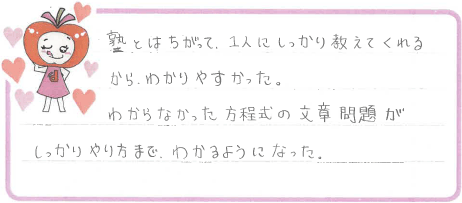 塾とはちがって、1人にしっかり教えてくれる
から、わかりやすかった。
わからなかった方程式の文章問題が
しっかりやり方まで、わかるようになった。